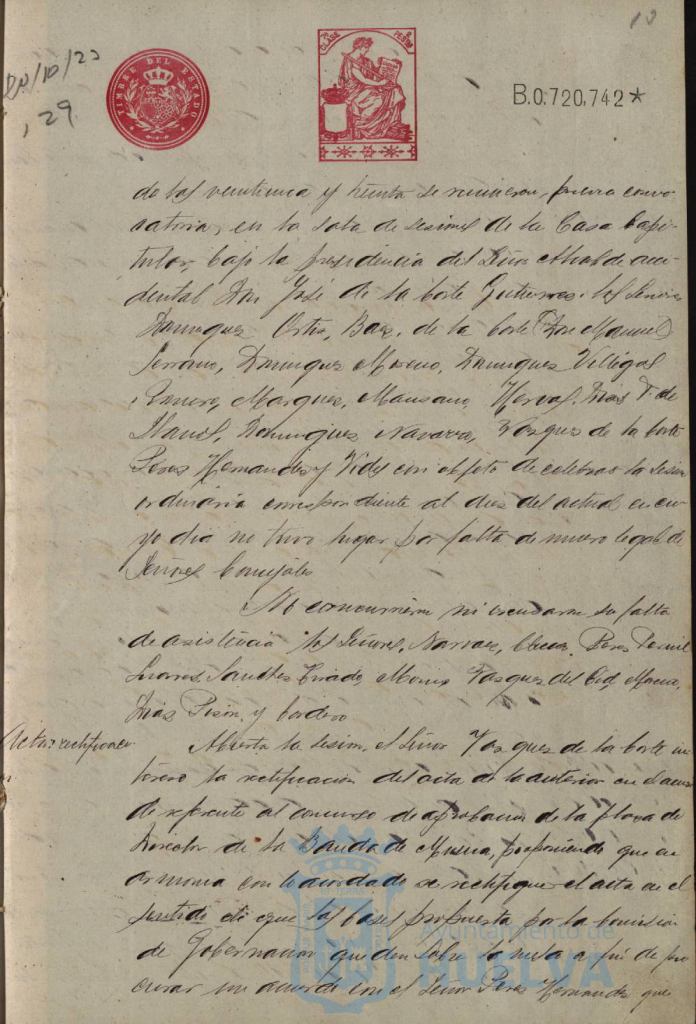 10
20/10/23
, 29
TIMBRE DEL ESTADO
7ª CLASE
8 PESETAS
B.0.720.742*
de las veintiuna y treinta se reunieron, previa convo-
catoria, en la sala de sesiones de la Casa Capi-
tular, bajo la presidencia del Señor Alcalde acci-
dental Don José de la Corte Gutierrez, los Señores
Dominguez Ortiz, Baz, de la Corte (Don Manuel)
Serrano, Dominguez Moreno, Dominguez Villegas
Romero, Marquez, Manzano, Hervas, Dias F. de
Llanos, Dominguez Navarro, Vazquez de la Corte
Peres Hernandez y Vides con objeto de celebrar la sesion
ordinaria correspondiente al dies del actual en cu-
yo dia no tuvo lugar por falta de numero legal de
Señores Concejales
No concurrieron ni excusaron su falta
de asistencia los Señores, Narvaez, Peres
Suares, Sanches Criado, Vazquez del Cid, Macia,
Dias Pison y Cordero
Acta rectificada
Abierta la sesion, el Señor Vazquez de la Corte in-
tereso la rectificacion del acta de la anterior en el acuer
do referente al concurso de aprobacion de la plaza de
Director de la Banda de Musica, proponiendo que en
armonia con lo acordado se rectifique el acta en el
sentido de que las bases propuesta por la Comision
de Gobernacion queden sobre la mesa a fin de pro-
curar un acuerdo con el Señor Peres Hernandez que
Ayuntamiento de
HUELVA